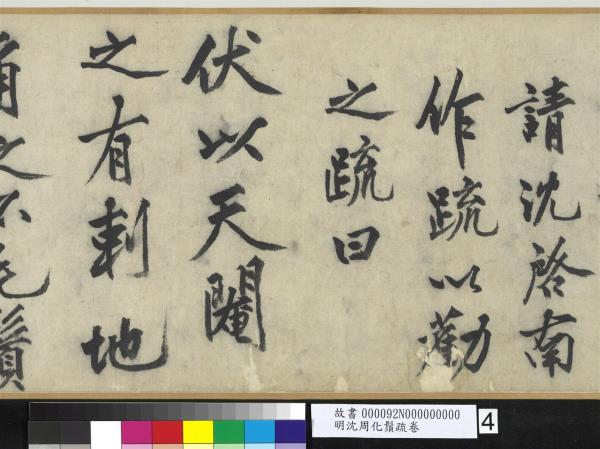 請沈啓南
作疏以勸
之疏曰
伏以天閹
之有刺地
角之不毛鬚
故書 000092N000000000
明沈周化鬚疏卷
4